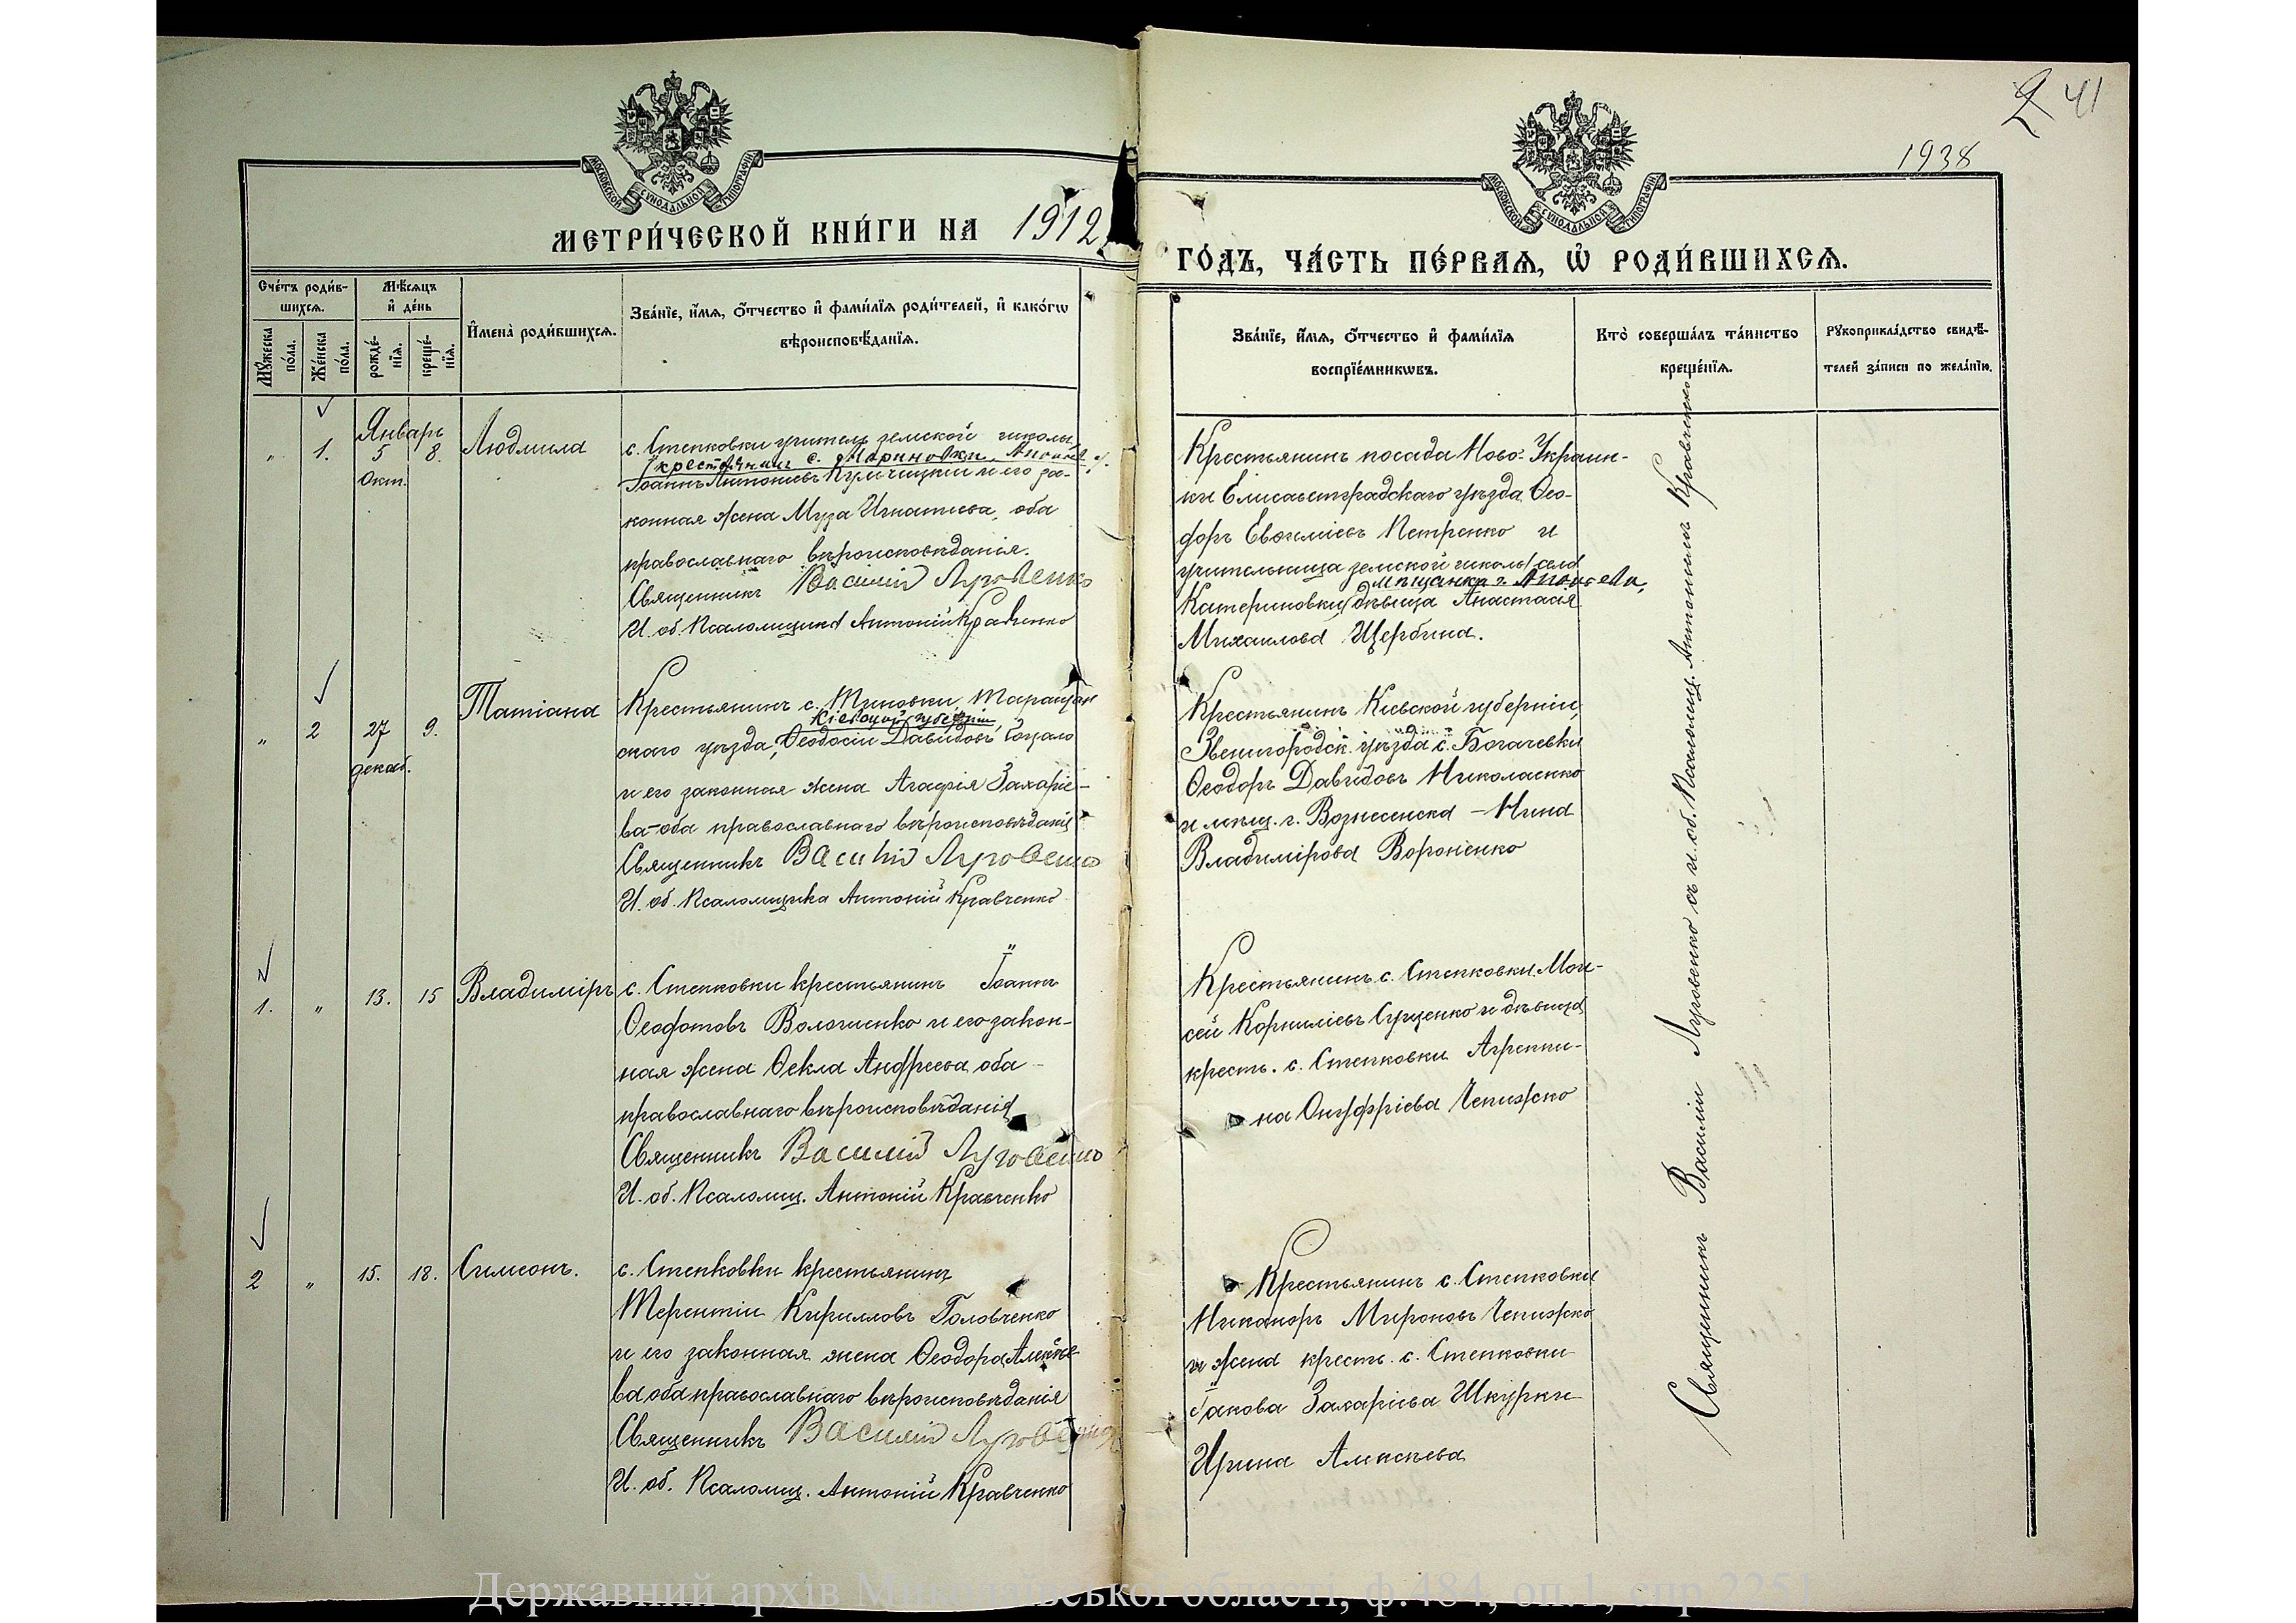 2 41
1938
МОСКОВСКОЙ СѴНОДАЛЬНОЙ ТИПОГРАФІИ
МОСКОВСКОЙ СѴНОДАЛЬНОЙ ТИПОГРАФІИ
МЕТРИ́ЧЕСКОЙ КНИ́ГИ НА 1912
ГО́ДЪ, ЧА́СТЬ ПЕ́РВАѦ, Ѡ҆ РОДИ́ВШИХСѦ.
Сче́тъ роди́в-
шихсѧ.
Мꙋ́жеска
по́ла.
Же́нска
по́ла.
Мѣ́сѧцъ
и҆ де́нь
рожде́-
нїѧ.
креще́-
нїѧ.
И҆мена̀ роди́вшихсѧ.
Зва́нїе, и҆́мѧ, ѻ҆́тчество и҆ фами́лїѧ роди́телей, и҆ како́гѡ
вѣроисповѣ́данїѧ.
Зва́нїе, и҆́мѧ, ѻ҆́тчество и҆ фами́лїѧ
воспрїе́мникѡвъ.
Кто̀ соверша́лъ та́инство
креще́нїѧ.
Рꙋкоприкла́дство свидѣ́-
телей за́писи по жела́нїю.
Январь
„ 1. 5 8. Людмила
Окт.
с. Степковки учитель земской школы,
крестьянинъ с. Мариновки,
Іоаннъ Антоніевъ и его за-
конная жена Муза Игнатіева, оба
православнаго вѣроисповѣданія.
Священникъ Василій Луговенко
И. об. Псаломщика Антоній Кравченко
Крестьянинъ посада Ново-Украин-
ки Елисаветградскаго уѣзда Ѳео-
доръ Евѳиміевъ Петренко и
учительница земской школы села
мѣщанка г.
Катериновки дѣвица Анастасія
Михаилова Щербина.
„ 2 27 9. Татіана
декаб.
Крестьянинъ с. Таращан
Кіевской губерніи,
скаго уѣзда, Ѳеодосій Давидовъ
и его законная жена Агафія Захаріе-
ва - оба православнаго вѣроисповѣданія
Священникъ Василій Луговенко
И. об. Псаломщика Антоній Кравченко
Крестьянинъ Кіевской губерніи,
Звенигородск. уѣзда с. Богачевки
Ѳеодоръ Давидовъ Николаенко
и мѣщ. г. Вознесенска - Нина
Владимірова Вороненко
1. „ 13. 15 Владиміръ
с. Степковки крестьянинъ Іоаннъ
Ѳеофотовъ и его закон-
ная жена Ѳекла Андреева оба -
православнаго вѣроисповѣданія
Священникъ Василій Луговенко
И. об. Псаломщ. Антоній Кравченко
Крестьянинъ с. Степковки Мои-
сей Корниліевъ Суценко и дѣвица
крест. с. Степковки Агрепи-
на Онуфріева Чепижко
2 „ 15. 18. Симеонъ.
с. Степковки крестьянинъ
Терентій Кирилловъ Головченко
и его законная жена Ѳеодора Алексѣе-
ва оба православнаго вѣроисповѣданія
Священникъ Василій Луговенко
И. об. Псаломщ. Антоній Кравченко
Крестьянинъ с. Степковки
Никаноръ Мироновъ Чепижко
и жена крест. с. Степковки
Іакова Захаріева Шкурки
Ирина Алексѣева
Священникъ Василій Луговенко съ и. об. Псаломщ. Антоніемъ Кравченко
Державний архів Миколаївської області, ф.484, оп.1, спр.2251